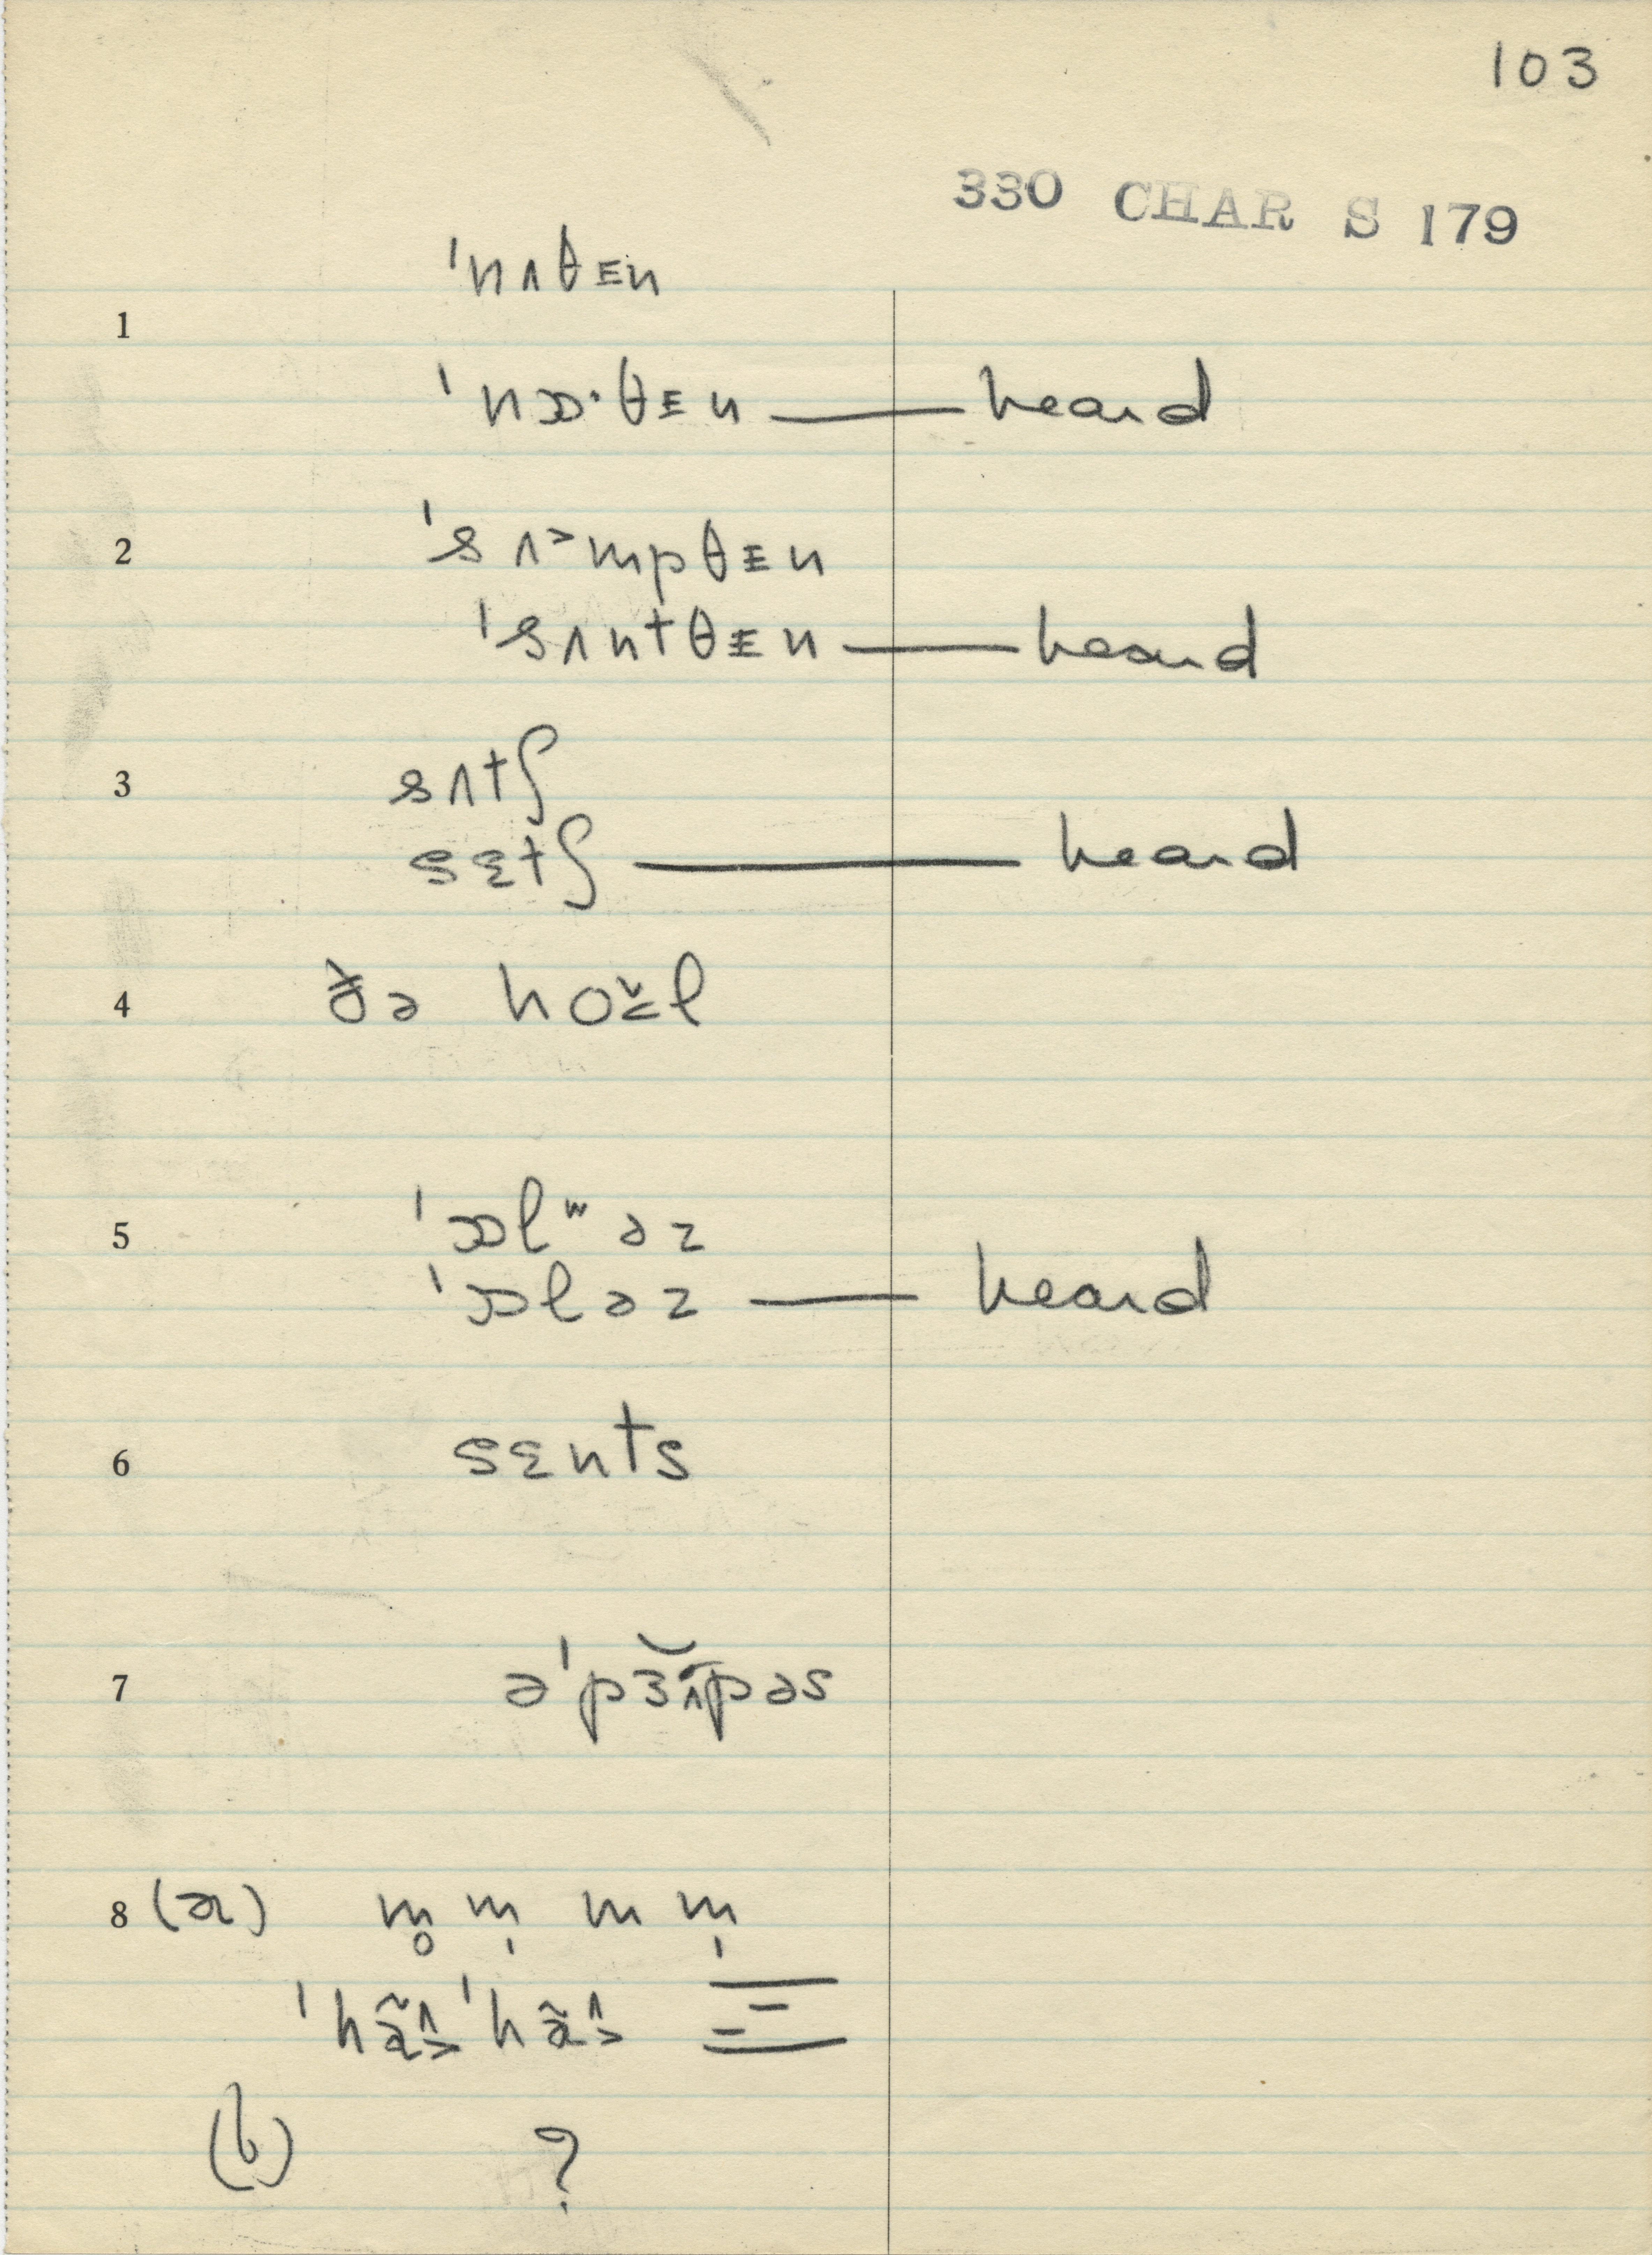 103
330 CHAR S 179
ˈnʌθɪn
1
ˈnɒ·θɪn — heard
2 ˈsʌ˃mpθɪn
ˈsʌntθɪn — heard
3 sʌtʃ
sɛtʃ — heard
4 ðə hoɪ̆l
5 ˈɒlʷəz
ˈɒləz — heard
6 sɛnts
7 əˈpɜʌ̆pəs
8 (a) m̥ m̩ m m̩
ˈhãʌ̂˃ ˈhãʌ̂˃
(b) ?